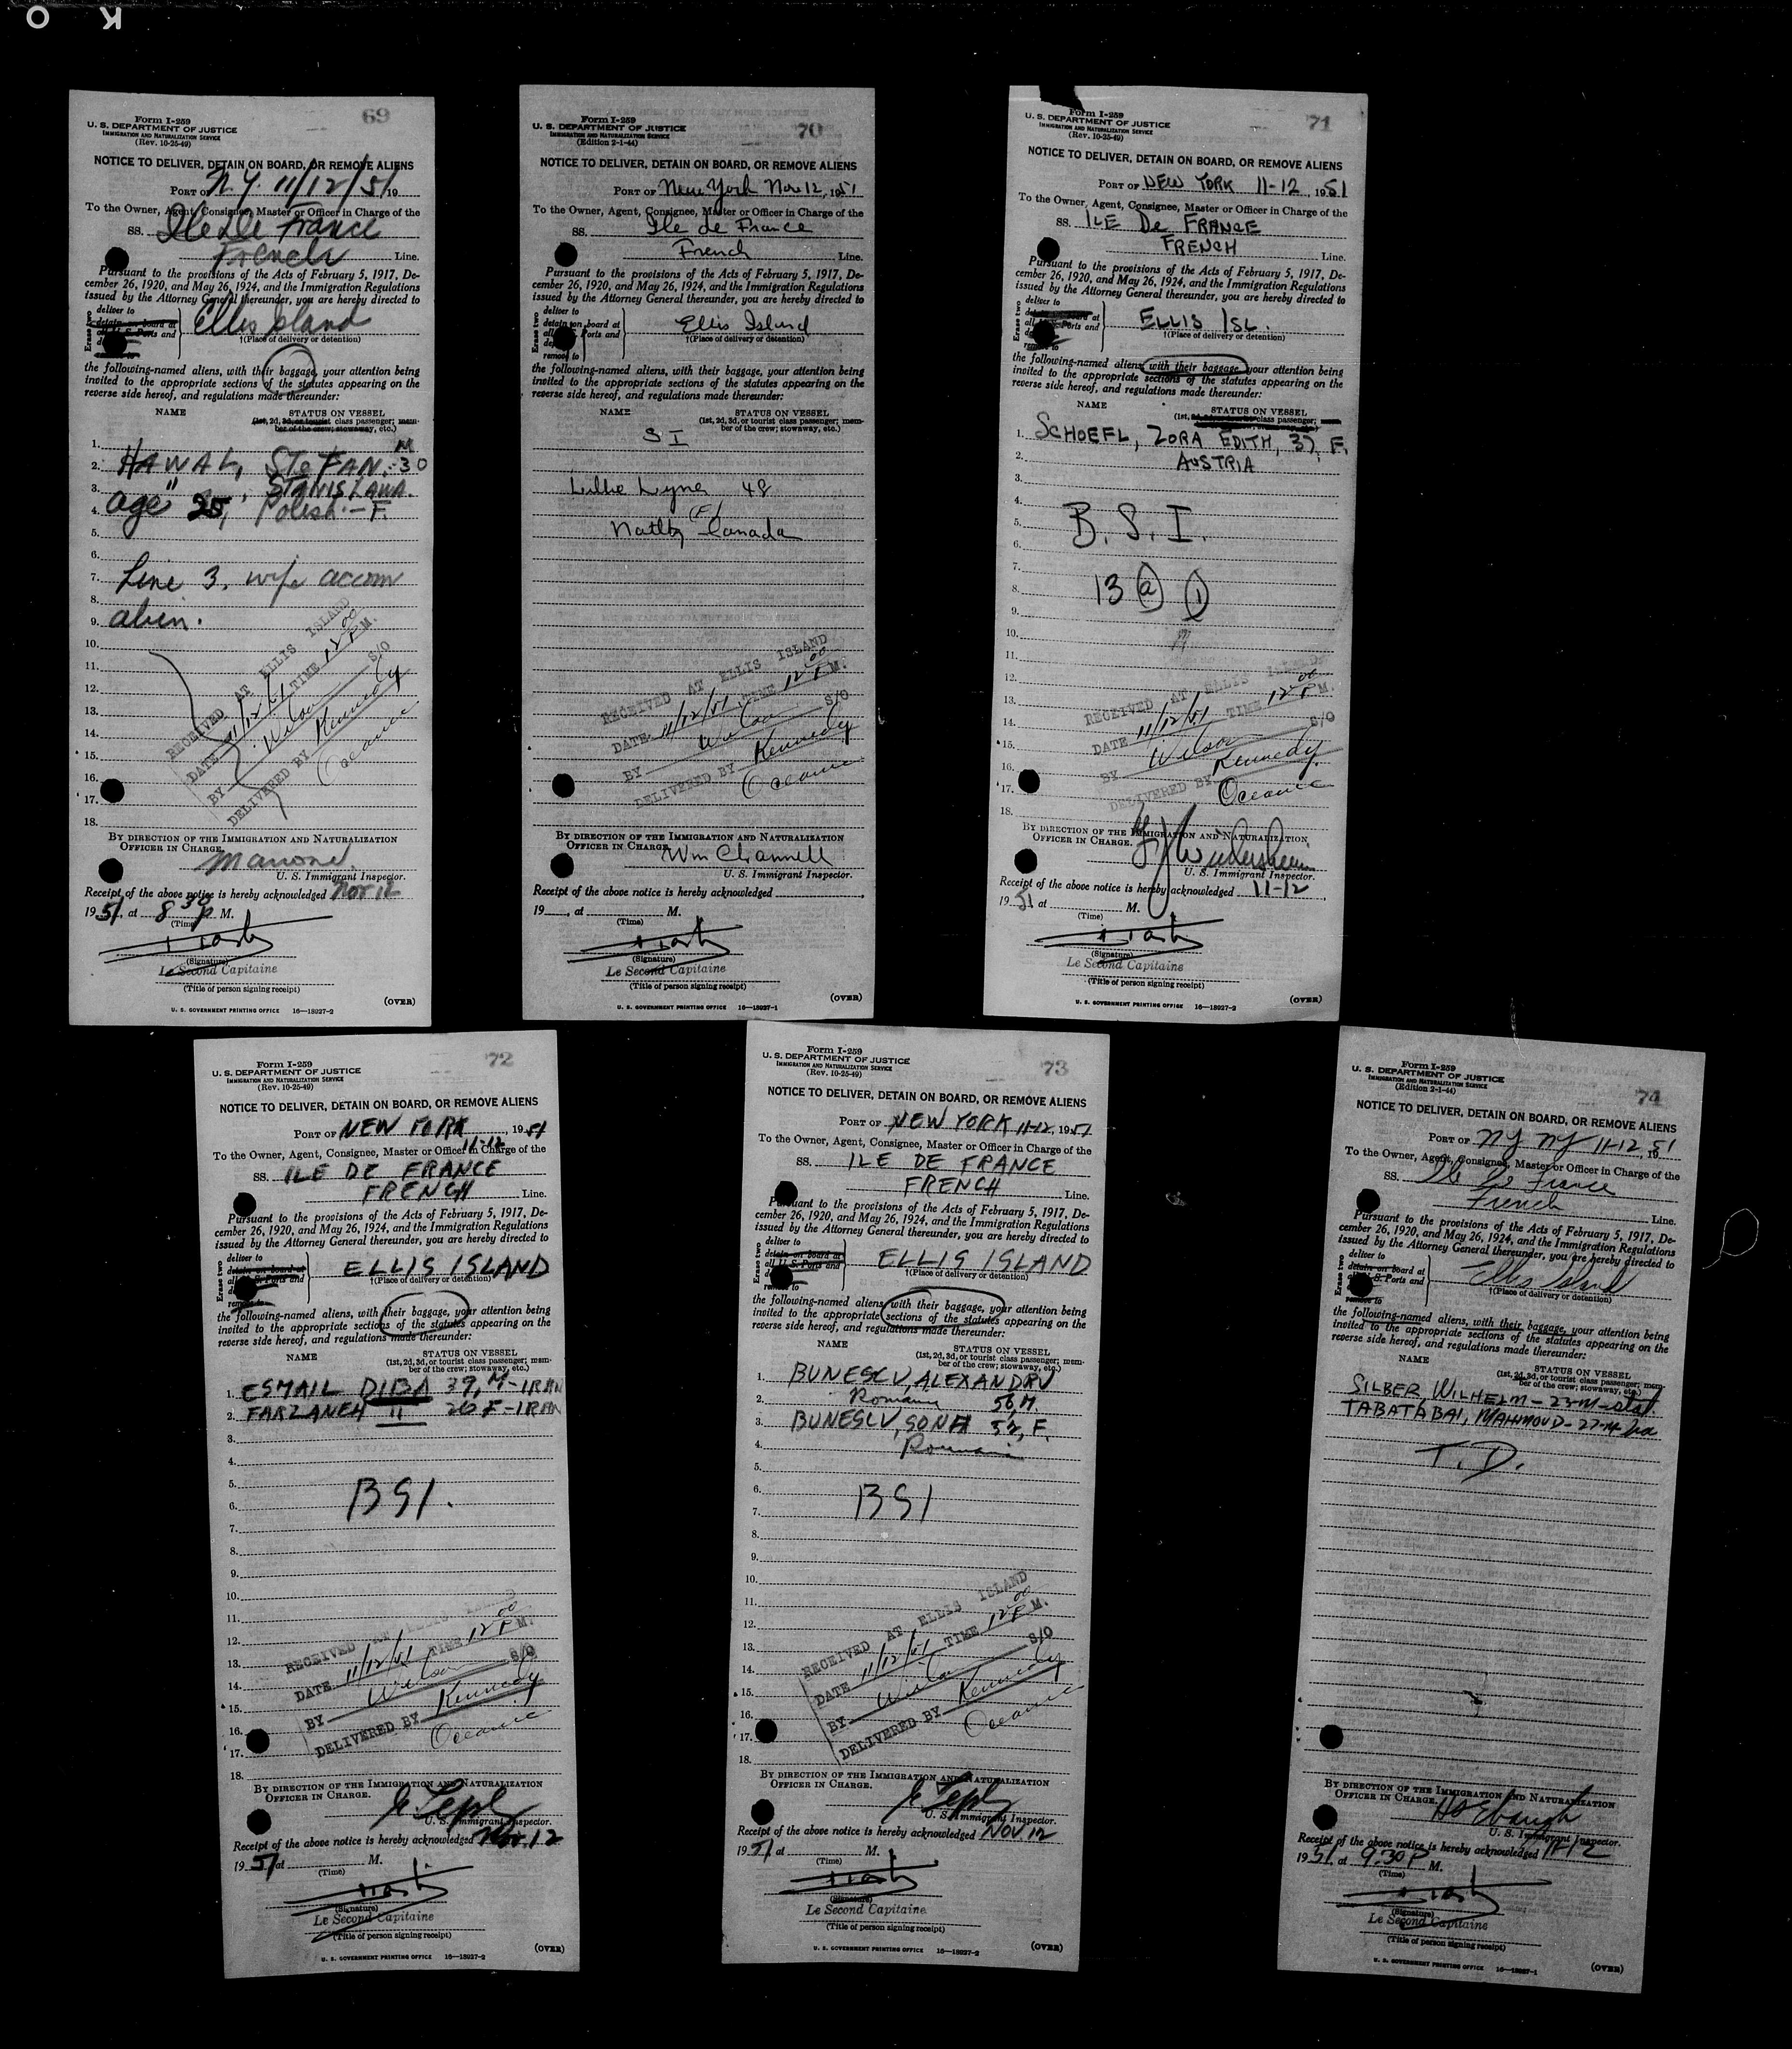 O K
69
Form I-259
U. S. DEPARTMENT OF JUSTICE
IMMIGRATION AND NATURALIZATION SERVICE
(Rev. 10-25-49)
NOTICE TO DELIVER, DETAIN ON BOARD, OR REMOVE ALIENS
PORT OF N.Y. 11/12/51 19
To the Owner, Agent, Consignee, Master or Officer in Charge of the
SS. Ile De France
French Line.
Pursuant to the provisions of the Acts of February 5, 1917, De-
cember 26, 1920, and May 26, 1924, and the Immigration Regulations
issued by the Attorney General thereunder, you are hereby directed to
Erase two
deliver to
detain on board at
all U. S. Ports and
Ellis Island
†(Place of delivery or detention)
the following-named aliens, with their baggage, your attention being
invited to the appropriate sections of the statutes appearing on the
reverse side hereof, and regulations made thereunder:
NAME STATUS ON VESSEL
(1st, 2d, 3d, or tourist class passenger; mem-
ber of the crew; stowaway, etc.)
1. M
2. HAWAL, STEFAN.-30
3. " STANISLAWA.
4. age 25, Polish.-F.
5.
6.
7. Line 3. wife accom
8.
9. alien.
10.
11.
12.
13.
14.
15.
16.
17.
18.
RECEIVED AT ELLIS ISLAND
DATE 11/12/51 TIME 12 00 P M.
BY Wilson S/O
DELIVERED BY Kennedy
Oceanic
BY DIRECTION OF THE IMMIGRATION AND NATURALIZATION
OFFICER IN CHARGE.
Manone
U. S. Immigrant Inspector.
Receipt of the above notice is hereby acknowledged Nov 12
1951, at 8 30 p M.
(Time)
(Signature)
Le Second Capitaine
(Title of person signing receipt)
(OVER)
U. S. GOVERNMENT PRINTING OFFICE 16—18927-2
70
Form I-259
U. S. DEPARTMENT OF JUSTICE
IMMIGRATION AND NATURALIZATION SERVICE
(Edition 2-1-44)
NOTICE TO DELIVER, DETAIN ON BOARD, OR REMOVE ALIENS
PORT OF New York Nov 12, 1951
To the Owner, Agent, Consignee, Master or Officer in Charge of the
SS. Ile de France
French Line.
Pursuant to the provisions of the Acts of February 5, 1917, De-
cember 26, 1920, and May 26, 1924, and the Immigration Regulations
issued by the Attorney General thereunder, you are hereby directed to
Erase two
deliver to
detain on board at
all U. S. Ports and
remove to
Ellis Island
†(Place of delivery or detention)
the following-named aliens, with their baggage, your attention being
invited to the appropriate sections of the statutes appearing on the
reverse side hereof, and regulations made thereunder:
NAME STATUS ON VESSEL
(1st, 2d, 3d, or tourist class passenger; mem-
ber of the crew; stowaway, etc.)
S I
Lillie 48
(F)
Natlty Canada
RECEIVED AT ELLIS ISLAND
DATE 11/12/51 TIME 12 00 P M.
BY Wilson S/O
DELIVERED BY Kennedy
Oceanic
BY DIRECTION OF THE IMMIGRATION AND NATURALIZATION
OFFICER IN CHARGE.
Wm Channell
U. S. Immigrant Inspector.
Receipt of the above notice is hereby acknowledged
19 , at M.
(Time)
(Signature)
Le Second Capitaine
(Title of person signing receipt)
(OVER)
U. S. GOVERNMENT PRINTING OFFICE 16—18927-1
71
Form I-259
U. S. DEPARTMENT OF JUSTICE
IMMIGRATION AND NATURALIZATION SERVICE
(Rev. 10-25-49)
NOTICE TO DELIVER, DETAIN ON BOARD, OR REMOVE ALIENS
PORT OF NEW YORK 11-12, 1951
To the Owner, Agent, Consignee, Master or Officer in Charge of the
SS. ILE De FRANCE
FRENCH Line.
Pursuant to the provisions of the Acts of February 5, 1917, De-
cember 26, 1920, and May 26, 1924, and the Immigration Regulations
issued by the Attorney General thereunder, you are hereby directed to
Erase two
deliver to
at
all U. S. Ports and
remove to
ELLIS ISL.
†(Place of delivery or detention)
the following-named aliens, with their baggage, your attention being
invited to the appropriate sections of the statutes appearing on the
reverse side hereof, and regulations made thereunder:
NAME STATUS ON VESSEL
(1st, class passenger;
1. SCHOEFL, ZORA EDITH, 37, F.
2. AUSTRIA
3.
4.
5. B. S. I.
6.
7.
8. 13 (a) (1)
9.
10.
11.
12.
13.
14.
15.
16.
17.
18.
RECEIVED AT ELLIS ISLAND
DATE 11/12/51 TIME 12 00 P M.
BY Wilson S/O
DELIVERED BY Kennedy
Oceanic
BY DIRECTION OF THE IMMIGRATION AND NATURALIZATION
OFFICER IN CHARGE.
U. S. Immigrant Inspector.
Receipt of the above notice is hereby acknowledged 11-12,
1951 at M.
(Time)
(Signature)
Le Second Capitaine
(Title of person signing receipt)
(OVER)
U. S. GOVERNMENT PRINTING OFFICE 16—18927-2
72
Form I-259
U. S. DEPARTMENT OF JUSTICE
IMMIGRATION AND NATURALIZATION SERVICE
(Rev. 10-25-49)
NOTICE TO DELIVER, DETAIN ON BOARD, OR REMOVE ALIENS
PORT OF NEW YORK, 1951
11-12
To the Owner, Agent, Consignee, Master or Officer in Charge of the
SS. ILE DE FRANCE
FRENCH Line.
Pursuant to the provisions of the Acts of February 5, 1917, De-
cember 26, 1920, and May 26, 1924, and the Immigration Regulations
issued by the Attorney General thereunder, you are hereby directed to
Erase two
deliver to
detain on board at
all U. S. Ports and
remove to
ELLIS ISLAND
†(Place of delivery or detention)
the following-named aliens, with their baggage, your attention being
invited to the appropriate sections of the statutes appearing on the
reverse side hereof, and regulations made thereunder:
NAME STATUS ON VESSEL
(1st, 2d, 3d, or tourist class passenger; mem-
ber of the crew; stowaway, etc.)
1. ESMAIL DIBA 39, M-IRAN
2. FARZANEH " 26 F-IRAN
3.
4.
5.
6. BSI.
7.
8.
9.
10.
11.
12.
13.
14.
15.
16.
17.
18.
RECEIVED AT ELLIS ISLAND
DATE 11/12/51 TIME 12 00 P M.
BY Wilson S/O
DELIVERED BY Kennedy
Oceanic
BY DIRECTION OF THE IMMIGRATION AND NATURALIZATION
OFFICER IN CHARGE.
U. S. Immigrant Inspector.
Receipt of the above notice is hereby acknowledged Nov. 12
1951 at M.
(Time)
(Signature)
Le Second Capitaine
(Title of person signing receipt)
(OVER)
U. S. GOVERNMENT PRINTING OFFICE 16—18927-2
73
Form I-259
U. S. DEPARTMENT OF JUSTICE
IMMIGRATION AND NATURALIZATION SERVICE
(Rev. 10-25-49)
NOTICE TO DELIVER, DETAIN ON BOARD, OR REMOVE ALIENS
PORT OF NEW YORK 11-12, 1951
To the Owner, Agent, Consignee, Master or Officer in Charge of the
SS. ILE DE FRANCE
FRENCH Line.
Pursuant to the provisions of the Acts of February 5, 1917, De-
cember 26, 1920, and May 26, 1924, and the Immigration Regulations
issued by the Attorney General thereunder, you are hereby directed to
Erase two
deliver to
detain on board at
all U. S. Ports and
remove to
ELLIS ISLAND
†(Place of delivery or detention)
the following-named aliens, with their baggage, your attention being
invited to the appropriate sections of the statutes appearing on the
reverse side hereof, and regulations made thereunder:
NAME STATUS ON VESSEL
(1st, 2d, 3d, or tourist class passenger; mem-
ber of the crew; stowaway, etc.)
1. BUNESCU, ALEXANDRU
2. 56, M.
3. BUNESCU, SONA 52, F.
4.
5.
6. BSI
7.
8.
9.
10.
11.
12.
13.
14.
15.
16.
17.
18.
RECEIVED AT ELLIS ISLAND
DATE 11/12/51 TIME 12 00 P M.
BY Wilson S/O
DELIVERED BY Kennedy
Oceanic
BY DIRECTION OF THE IMMIGRATION AND NATURALIZATION
OFFICER IN CHARGE.
U. S. Immigrant Inspector.
Receipt of the above notice is hereby acknowledged NOV 12
1951 at M.
(Time)
(Signature)
Le Second Capitaine
(Title of person signing receipt)
(OVER)
U. S. GOVERNMENT PRINTING OFFICE 16—18927-2
74
Form I-259
U. S. DEPARTMENT OF JUSTICE
IMMIGRATION AND NATURALIZATION SERVICE
(Edition 2-1-44)
NOTICE TO DELIVER, DETAIN ON BOARD, OR REMOVE ALIENS
PORT OF NY NY 11-12, 1951
To the Owner, Agent, Consignee, Master or Officer in Charge of the
SS. Ile De France
French Line.
Pursuant to the provisions of the Acts of February 5, 1917, De-
cember 26, 1920, and May 26, 1924, and the Immigration Regulations
issued by the Attorney General thereunder, you are hereby directed to
Erase two
deliver to
detain on board at
all U. S. Ports and
remove to
Ellis Island
†(Place of delivery or detention)
the following-named aliens, with their baggage, your attention being
invited to the appropriate sections of the statutes appearing on the
reverse side hereof, and regulations made thereunder:
NAME STATUS ON VESSEL
(1st, 2d, 3d, or tourist class passenger; mem-
ber of the crew; stowaway, etc.)
SILBER, WILHELM-23-M-
TABATABAI, MAHMOUD-27-M
T. D.
BY DIRECTION OF THE IMMIGRATION AND NATURALIZATION
OFFICER IN CHARGE.
U. S. Immigrant Inspector.
Receipt of the above notice is hereby acknowledged 11-12
1951, at 9:30 P M.
(Time)
(Signature)
Le Second Capitaine
(Title of person signing receipt)
(OVER)
U. S. GOVERNMENT PRINTING OFFICE 16—18927-1